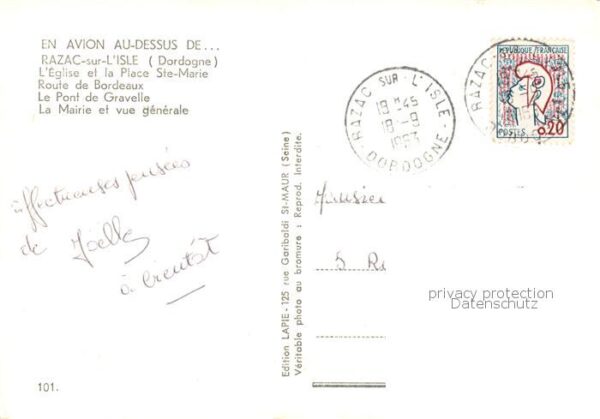 EN AVION AU-DESSUS DE...
RAZAC-sur-L'ISLE (Dordogne)
L'Église et la Place Ste-Marie
Route de Bordeaux
Le Pont de Gravelle
La Mairie et vue générale
RAZAC SUR L'ISLE
18 H45
18-9
1963
DORDOGNE
RÉPUBLIQUE FRANÇAISE
POSTES
0,20
Affectueuses pensées
de Joëlle
à bientôt
5 R
Edition LAPIE - 125 rue Garibaldi St-MAUR (Seine)
Véritable photo au bromure : Reprod. Interdite.
privacy protection
Datenschutz
101.